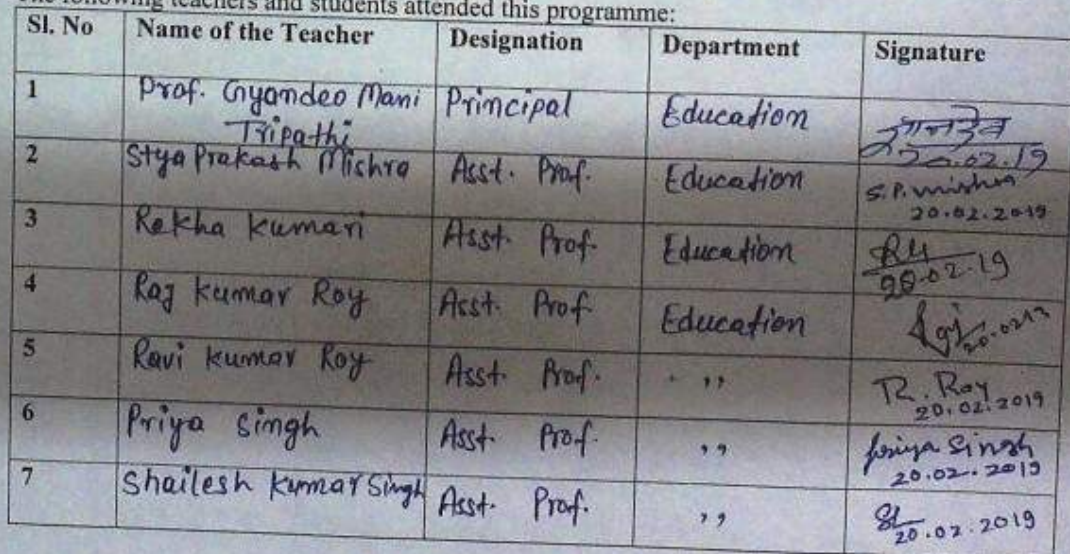 The following teachers and students attended this programme:
Sl. No Name of the Teacher Designation Department Signature
1 Prof. Gyandeo Mani Tripathi Principal Education ज्ञानदेव 20.02.19
2 Stya Prakash Mishra Asst. Prof. Education S. P. Mishra 20.02.2019
3 Rekha Kumari Asst. Prof. Education 20.02.19
4 Raj Kumar Roy Asst. Prof. Education
5 Ravi Kumar Roy Asst. Prof. ,, R. Roy 20.02.2019
6 Priya Singh Asst. Prof. ,, Priya Singh 20.02.2019
7 Shailesh Kumar Singh Asst. Prof. ,, 20.02.2019